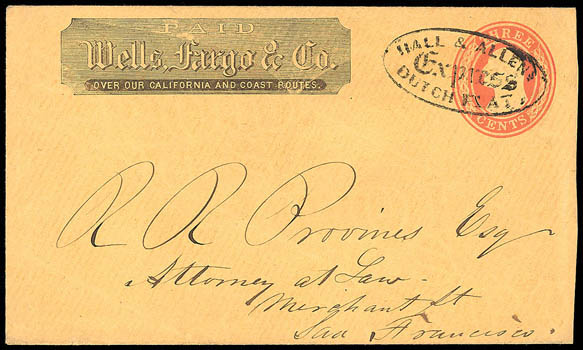 PAID
Wells, Fargo & Co.
OVER OUR CALIFORNIA AND COAST ROUTES.
HALL & ALLEN'S
Express
DUTCH FLAT.
THREE
CENTS
R R Provines Esq
Attorney at Law.
Merchant St
San Francisco.